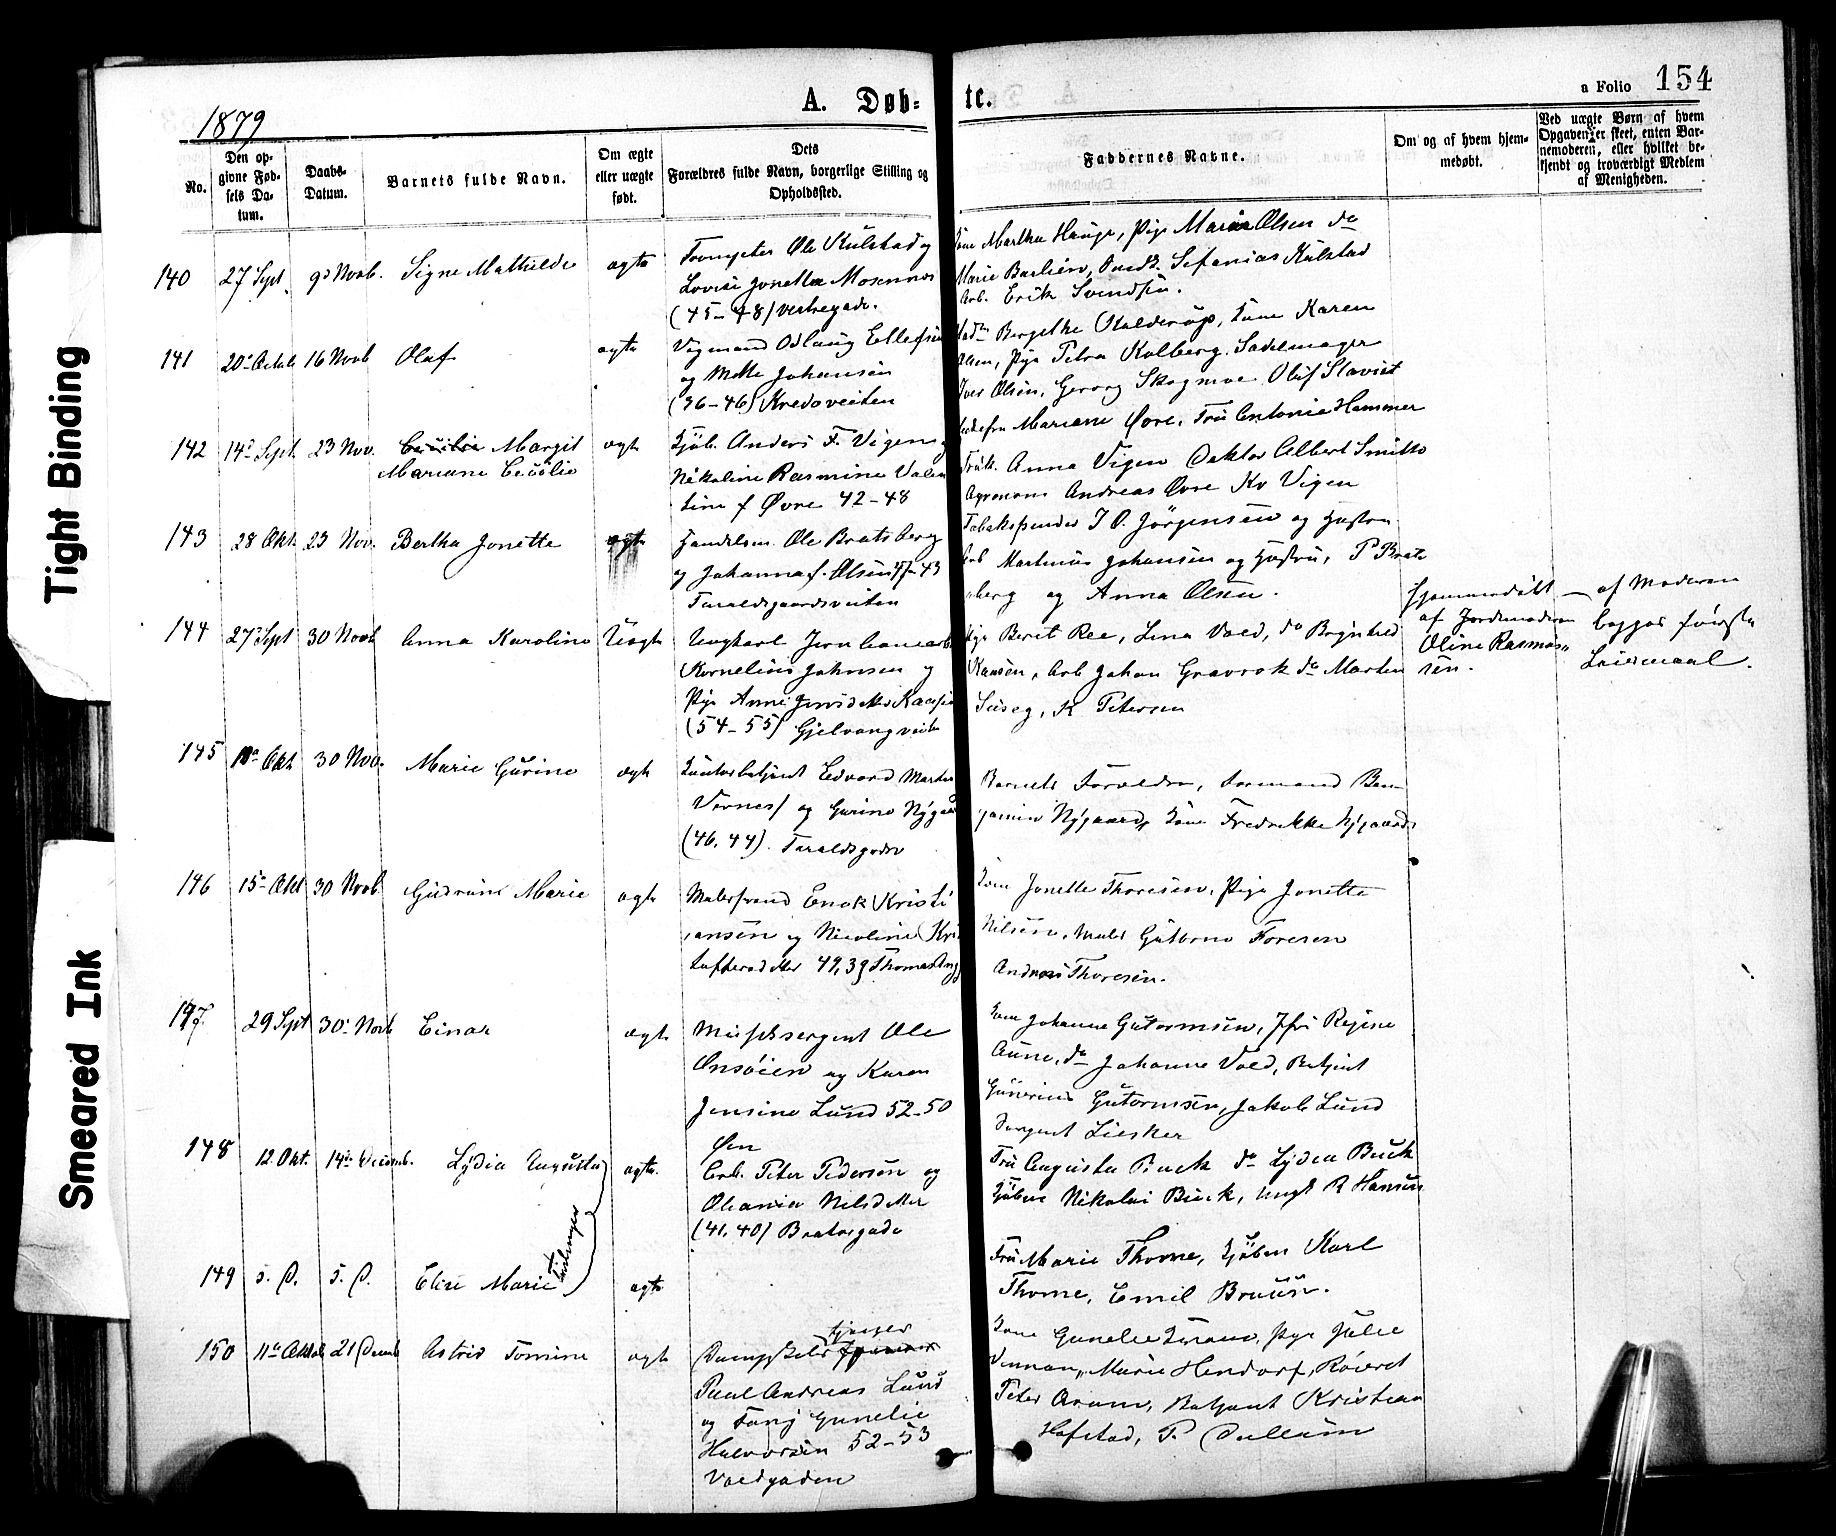 Tight Binding
Smeared Ink
1879
A. Døb-
te.
a Folio 154
No.
Den op-
givne Fød-
sels Da-
tum.
Daabs-
Datum.
Barnets fulde Navn.
Om ægte
eller uægte
født.
Dets
Forældres fulde Navn, borgerlige Stilling og
Opholdssted.
Faddernes Navne.
Om og af hvem hjem-
medøbt.
Ved uægte Børn af hvem
Opgaven er skeet, enten Bar-
nemoderen, eller hvilket be-
kjendt og troværdigt Medlem
af Menigheden.
140 27 Sept. 9d Novb. Signe Mathilde ægte
Trompeter Ole Kulstad og
Lovise Jonetta Mosennos
(45–48) Vestregade.
Kone Martha Hauge, Pige Maria Olsen do
Marie Barlien, Sefanias Kulstad
Arb. Erik Svendsen.
141 20de Octob 16 Novb Olaf ægte
Vognmand Odlaug Ellefsen
og Mette Johansen
(36–46) Kredoveiten
Mad. Bergethe Halderup, Kone Karen
Olsen, Pige Petra Kolberg. Sadelmager
Iver Olsen, Georg Skogmoe Oluf Slaviet
142 14de Sept. 23 Nov. Cecilie Margit
Mariane Cecilie ægte
Kjøb. Anders F. Vigen og
Nikoline Rasmine Valen
tine f Øvre 42–48
Mariane Øvre, Fru Antonie Hammer
Frøk. Anna Vigen Doktor Albert Smitto
Agronom Andreas Øvre Kv Vigen
143 28 Okt. 23 Nov. Bertha Jonette ægte
Handelsm. Ole Bratsberg
og Johanna f. Olsen 47–43
Taraldsgaardsveiten
Tobakspinder I O. Jørgensen og Hustru
Arb Martinus Johansen og Hustru, P Brats
berg og Anna Olsen.
144 27de Sept 30 Novb Anna Karoline Uægte
Ungkarl Jernbanearb
Kornelius Johnsen og
Pige Anne Jensdatter Kaasen
(54–55) Gjelvangveita
Pige Beret Ree, Lina Vold, do Brynhild
Kaasen, Arb Johan Gravrok do Morten
Seiseg, K Petersen
Hjemmedøbt
af Jordemoderen
Oline Rasmus-
sen.
– af Moderen
begges første
Leiermaal.
145 Okt 30 Nov. Marie Gurine ægte
Kontorbetjent Edvard Martin
Vornes) og Gurine Nygaard
(46, 44). Taraldsgaden
Barnets Forældre, Formand Ben
jamin Nygaard, Kone Fredrikke Nygaard
146 15de Okt 30 Novb. Gudrun Marie ægte
Malersvend Enok Kristi
ansen og Nicoline Kri
stoffersdatter 49,39 Thomas Ang.
Kone Jonette Thoresen, Pige Jonette
Nilsen, Maler Guttorm Foresen
Andreas Thoresen.
147. 29 Sept 30te Novb Einar ægte
Musiksergent Ole
Onsøien og Karen
Jensine Lund 52–50
Øen
Kone Johanne Gutormsen, Jfr Regine
Aune, do Johanne Vold, Betjent
Gunerius Gutormsen, Jakob Lund
Sergent Liesker
148 12. Okt. 14de Decemb. Lydia Augusta ægte.
Arb. Peter Pedersen og
Oleania Nilsdatter
(41, 40) Bratørgade
Fru Augusta Buck do Lydia Buck
Kjøbm Nikolai Buck, Ungk R Hansen
149 s. D. s. D. Elise Marie ægte
Tvillinger
Fru Marie Thorne, Kjøbm Karl
Thorne, Emil Bruun.
150 11te Oktob 21 Decemb Astrid Tomine ægte
Dampskibs
Paul Andreas Lund
og Tonj Gunelie
Halvorsen 52–53
Voldgaden
Kone Gunelie Aram, Pige Julie
Venman, Marie Hendorf, Røieret
Peter Aram, Betjent Kristian
Hofstad, P. Dullum